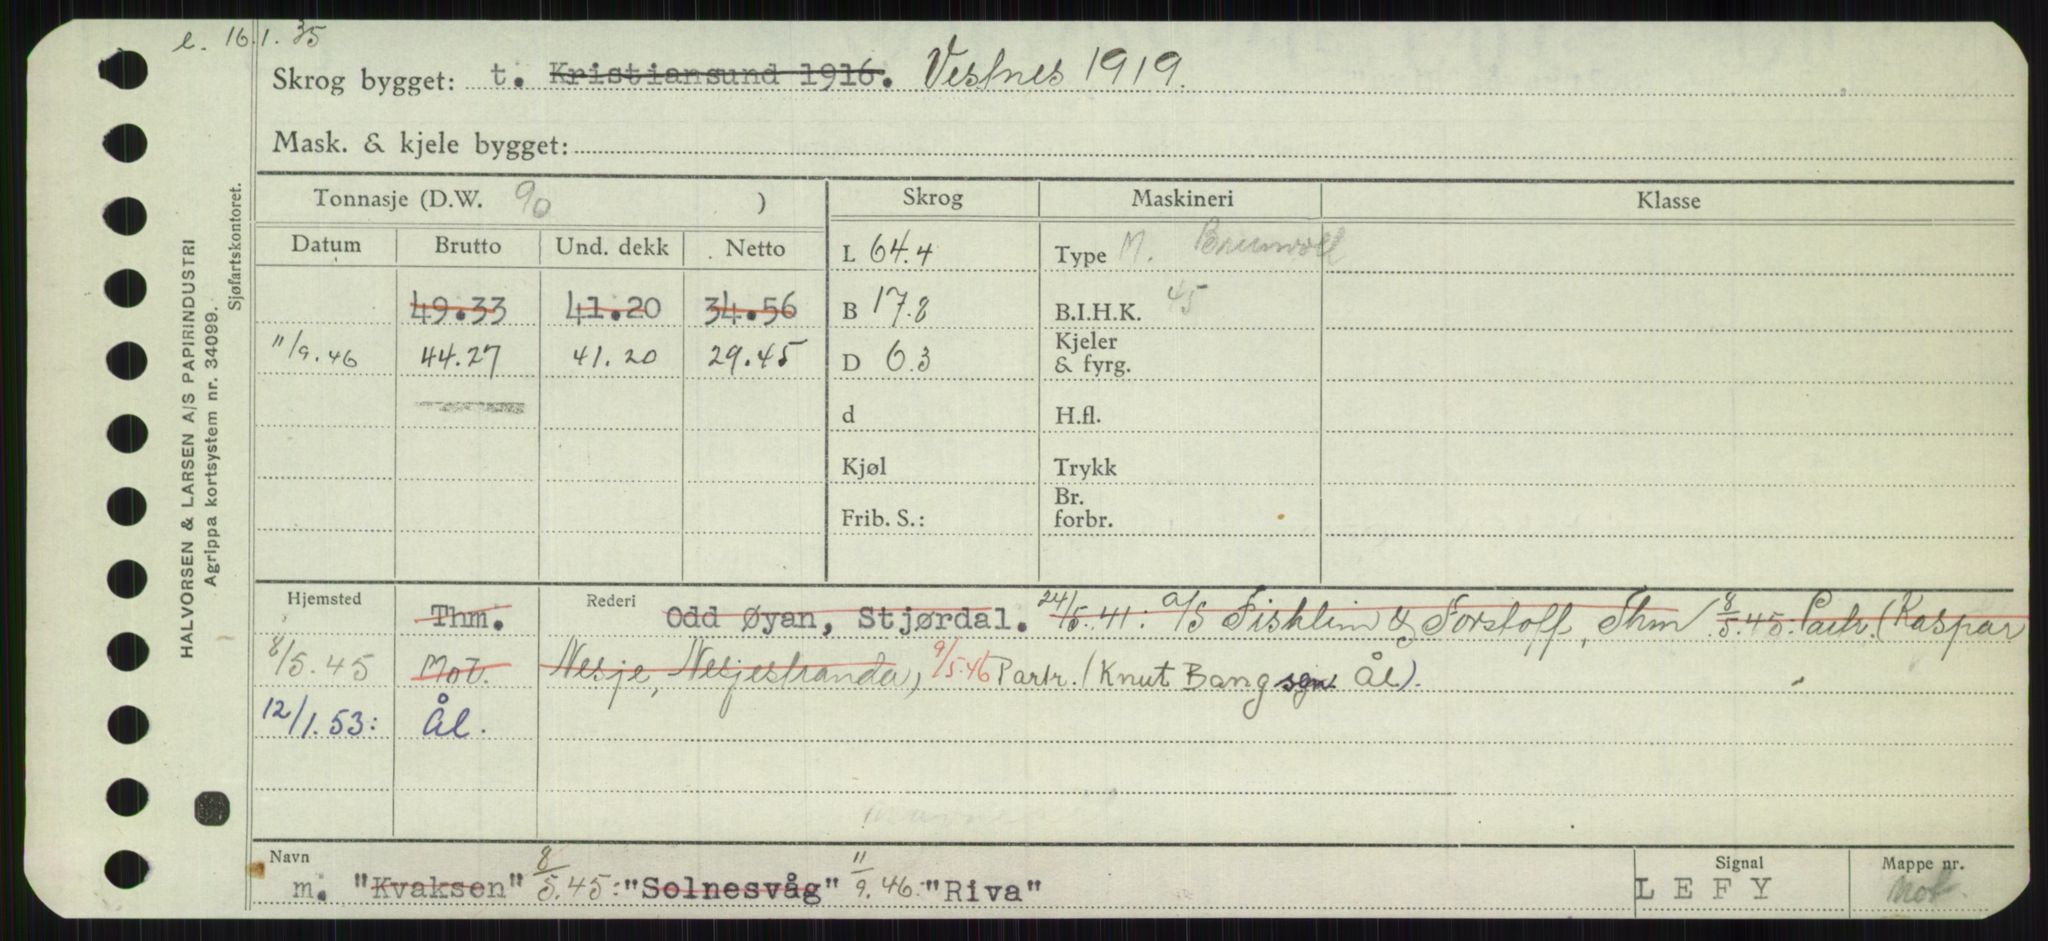 e. 16.1.35
Skrog bygget: t. Kristiansund 1916. Vestnes 1919.
Mask. & kjele bygget:
HALVORSEN & LARSEN A/S PAPIRINDUSTRI
Agrippa kortsystem nr. 34099.
Sjøfartskontoret.
Tonnasje (D.W. 90 )
Skrog
Maskineri
Klasse
Datum Brutto Und. dekk Netto
49.33 41.20 34.56
11/9.46 44.27 41.20 29.45
L 64.4
B 17.8
D 6.3
d
Kjøl
Frib. S.:
Type M. Brunvoll
B.I.H.K. 45
Kjeler
& fyrg.
H.fl.
Trykk
Br.
forbr.
Hjemsted Thm. Rederi Odd Øyan, Stjørdal. 24/5.41: A/S Fisklim & Forstoff, Thm 8/5.45. Partr. (Kaspar
8/5.45 Mol. Nesje, Nesjestranda, 9/5.46 Partr. (Knut Bang sgn. Ål).
12/1.53: Ål.
Navn
m. "Kvaksen" 8/5.45: "Solnesvåg" 11/9.46: "Riva"
Signal
LEFY
Mappe nr.
Mot.